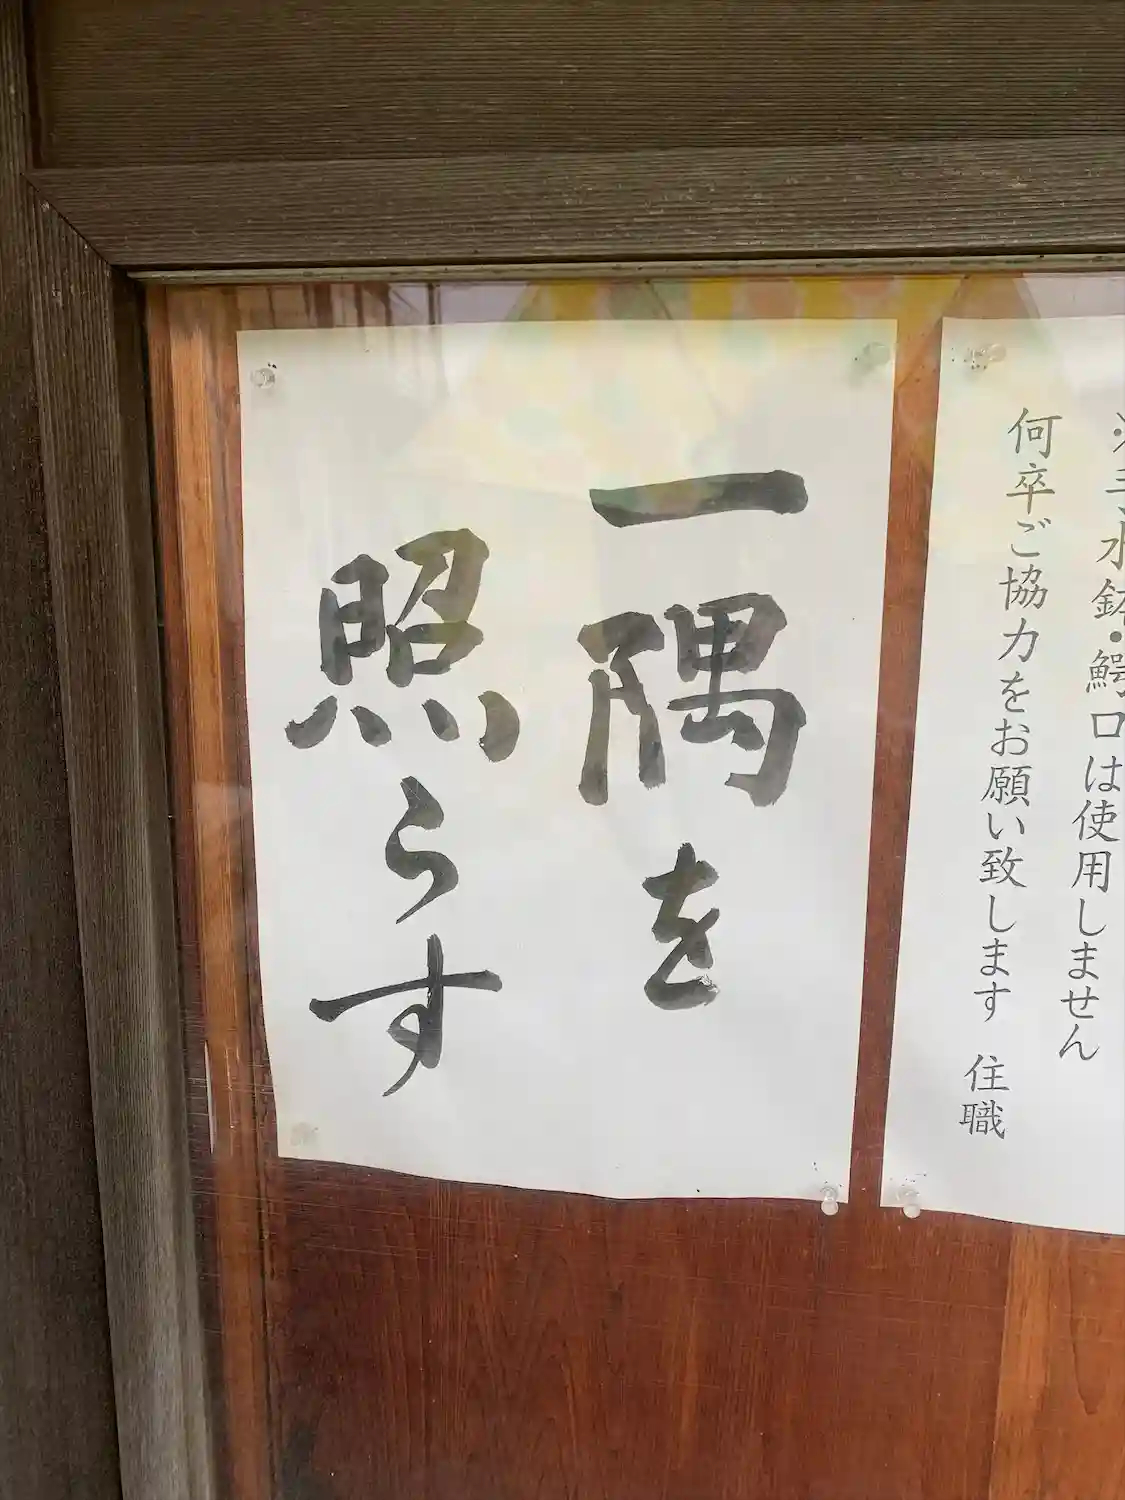 一隅を
照らす
※手水鉢・鰐口は使用しません
何卒ご協力をお願い致します　住職